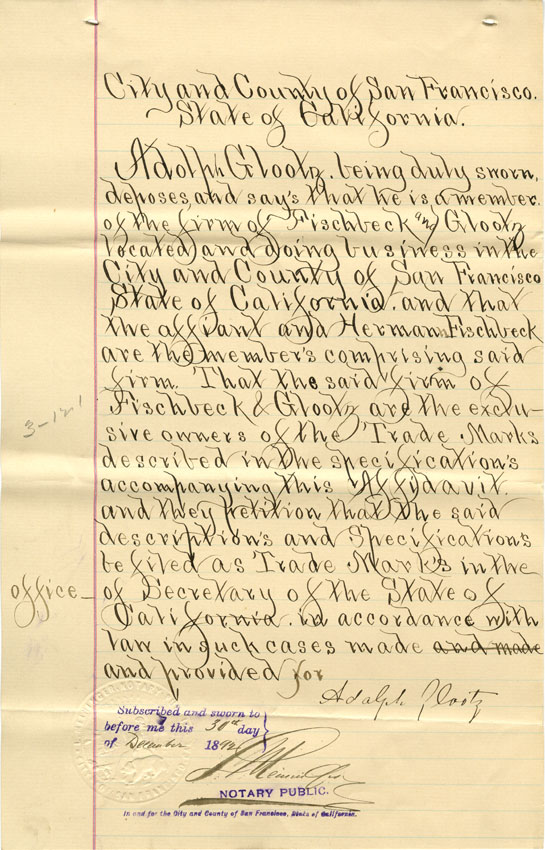 City and County of San Francisco.
State of California.
Adolph Glootz, being duly sworn,
deposes, and say's that he is a member.
of the firm of Fischbeck and Glootz
located, and doing business in the
City and County of San Francisco
State of California, and that
the affiant and Herman Fischbeck
are the member's comprising said
firm. That the said firm of
Fischbeck & Glootz are the exclu-
3-121
sive owners of the Trade Marks
described in the specification's
accompanying this Affidavit.
and they petition that the said
description's and Specification's
be filed as Trade Mark's in the
office
of Secretary of the State of
California. in accordance with
law in such cases made and made
and provided for
Adolph Glootz
Subscribed and sworn to
before me this 30th day
of December 189
NOTARY PUBLIC.
In and for the City and County of San Francisco, State of California.